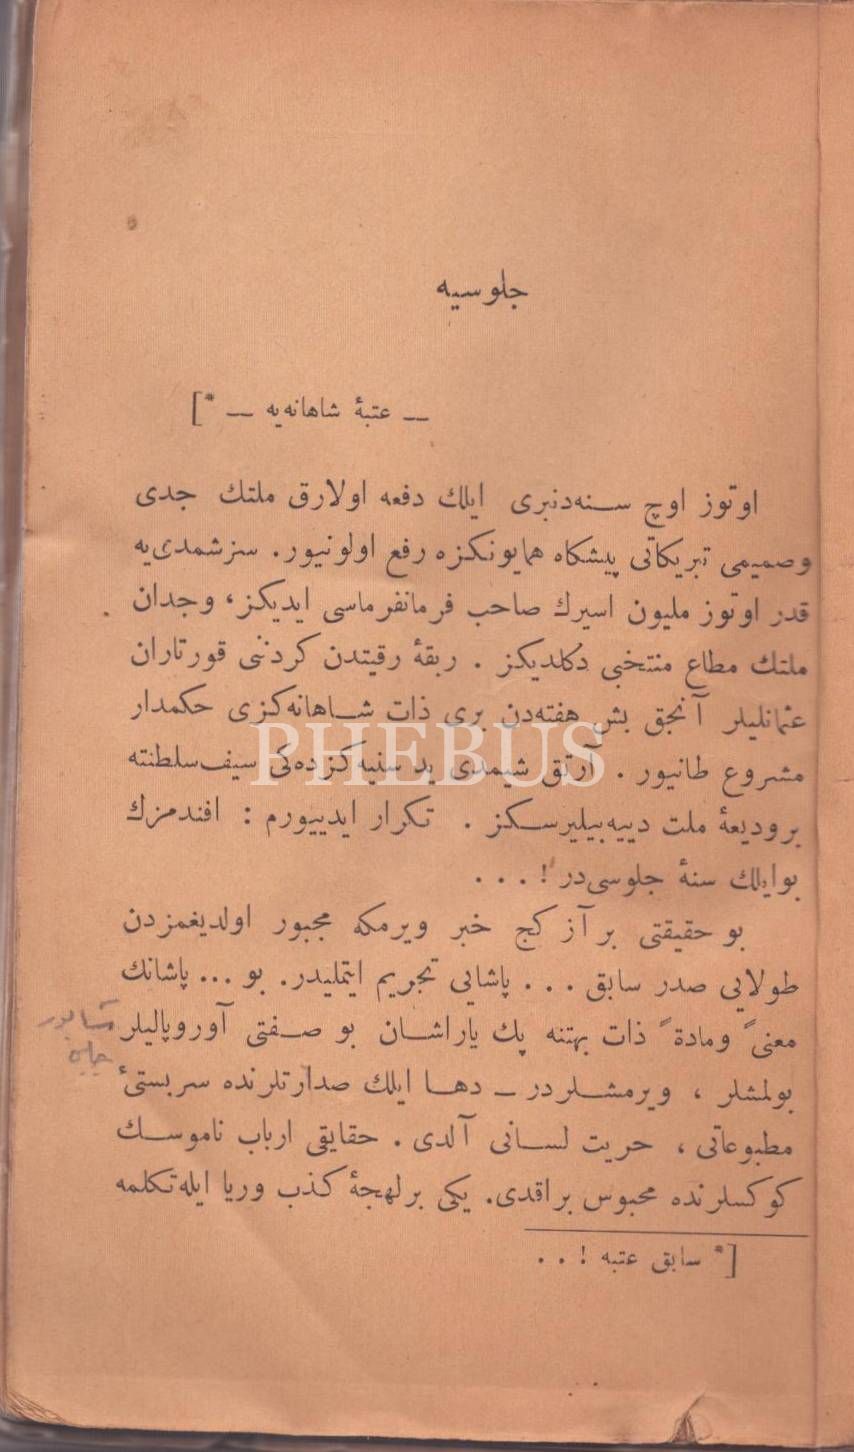 جلوسیه
— عتبۀ شاهانه‌یه — *]
اوتوز اوچ سنه‌دنبری ایلك دفعه اولارق ملتك جدی
وصمیمی تبریكاتی پیشكاه همایونكزه رفع اولونیور. سز شمدی‌یه
قدر اوتوز ملیون اسیرك صاحب فرمانفرماسی ایدیكز، وجدان
ملتك مطاع منتخبی دكلدیكز . ربقۀ رقیتدن كردننی قورتاران
عثمانلیلر آنجق بش هفته‌دن بری ذات شاهانه‌كزی حكمدار
مشروع طانیور . آرتق شیمدی ید سنیه‌كزده‌كی سیف سلطنته
برودیعۀ ملت دییه‌بیلیرسكز . تكرار ایدییورم : افندمزك
بوایلك سنۀ جلوسی‌در ! . . .
بو حقیقتی بر آز كج خبر ویرمكه مجبور اولدیغمزدن
طولایی صدر سابق . . . پاشایی تجریم ایتملیدر. بو ... پاشانك
معنیً ومادةً ذات بهتنه پك یاراشان بو صفتی آوروپالیلر
بولمشلر ، ویرمشلردر ـ دها ایلك صدارتلرنده سربستیٔ
مطبوعاتی ، حریت لسانی آلدی . حقایقی ارباب ناموسك
كوكسلرنده محبوس براقدی. یكی برلهجۀ كذب وریا ایله تكلمه
[* سابق عتبه ! . .
PHEBUS